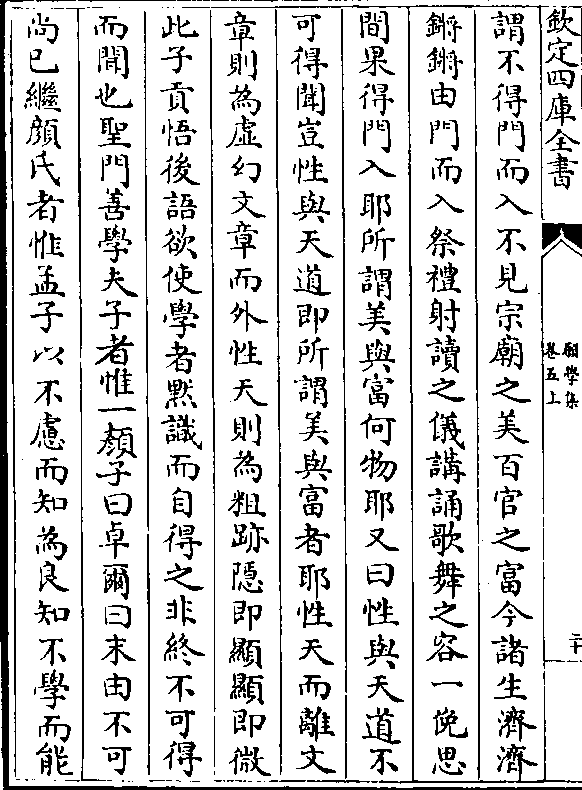 欽定四庫全書
願學集
卷五上
二十
謂不得門而入不見宗廟之美百官之富今諸生濟濟
鏘鏘由門而入祭禮射讀之儀講誦歌舞之容一俛思
間果得門入耶所謂美與富何物耶又曰性與天道不
可得聞豈性與天道即所謂美與富者耶性天而離文
章則為虛幻文章而外性天則為粗跡隱即顯顯即微
此子貢悟後語欲使學者黙識而自得之非終不可得
而聞也聖門善學夫子者惟一顏子曰卓爾曰末由不可
尚已繼顏氏者惟孟子以不慮而知為良知不學而能